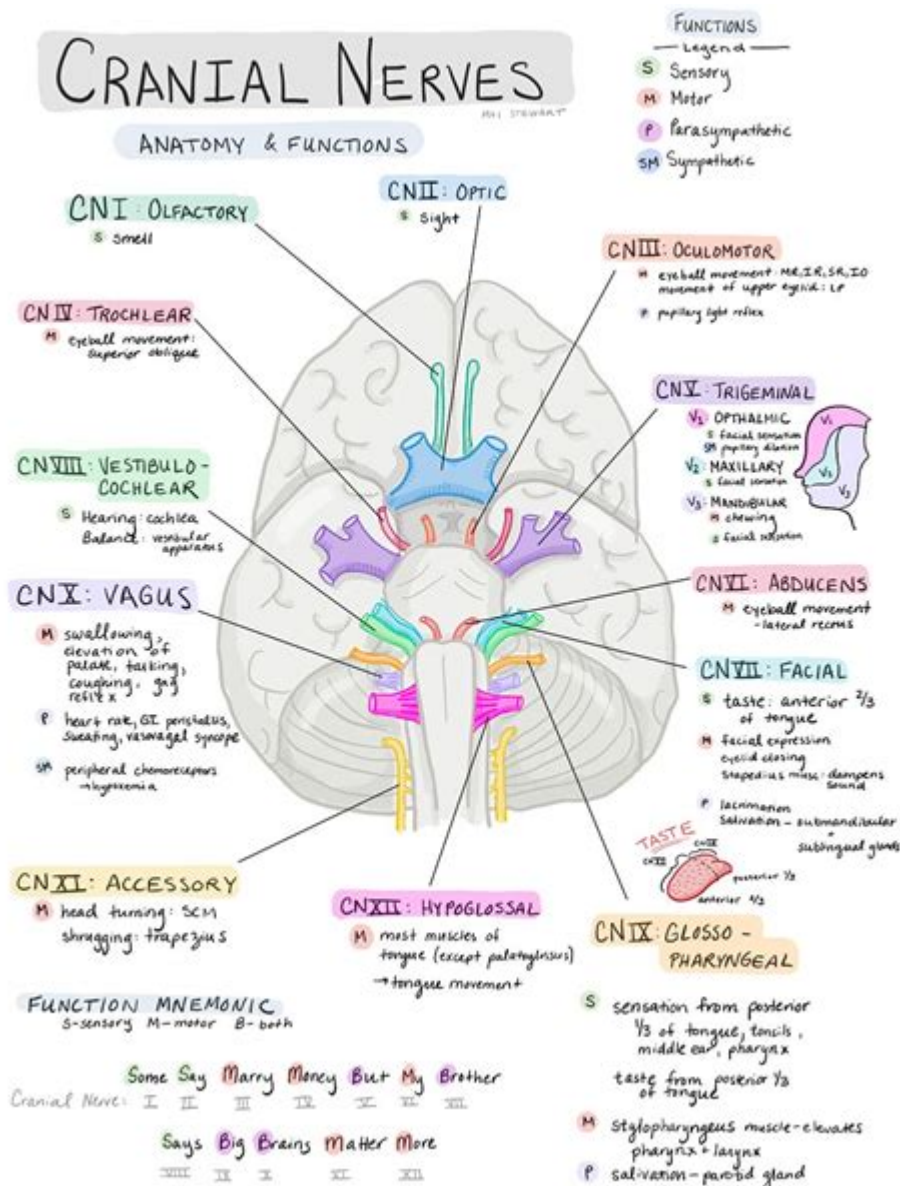 CRANIAL NERVES
ANATOMY & FUNCTIONS
FUNCTIONS
Legend
S Sensory
M Motor
P Parasympathetic
SM Sympathetic
CN I: OLFACTORY
S Smell
CN II: OPTIC
S Sight
CN III: OCULOMOTOR
M eyeball movement: MR, IR, SR, IO
movement of upper eyelid: LP
P pupillary light reflex
CN IV: TROCHLEAR
M eyeball movement:
superior oblique
CN V: TRIGEMINAL
V1 OPTHALMIC
S facial sensation
SM pupillary dilation
V2 MAXILLARY
S facial sensation
V3 MANDIBULAR
M chewing
S facial sensation
V1
V2
V3
CN VIII: VESTIBULO-
COCHLEAR
S Hearing: cochlea
Balance: vestibular
apparatus
CN VI: ABDUCENS
M eyeball movement
- lateral rectus
CN X: VAGUS
M swallowing,
elevation of
palate, talking,
coughing, gag
reflex
P heart rate, GI peristalsis,
sweating, vasovagal syncope
SM peripheral chemoreceptors
→ hypoxemia
CN VII: FACIAL
S taste: anterior 2/3
of tongue
M facial expression
eyelid closing
stapedius musc: dampens
sound
P lacrimation
salivation - submandibular
+
sublingual glands
TASTE
CN VII
CN IX
posterior 1/3
anterior 2/3
CN XI: ACCESSORY
M head turning: SCM
shrugging: trapezius
CN XII: HYPOGLOSSAL
M most muscles of
tongue (except palatoglossus)
→ tongue movement
CN IX: GLOSSO-
PHARYNGEAL
S sensation from posterior
1/3 of tongue, tonsils,
middle ear, pharynx
taste from posterior 1/3
of tongue
M stylopharyngeus muscle - elevates
pharynx + larynx
P salivation - parotid gland
FUNCTION MNEMONIC
S-sensory M-motor B-both
Some Say Marry Money But My Brother
Cranial Nerve: I II III IV V VI VII
Says Big Brains Matter More
VIII IX X XI XII